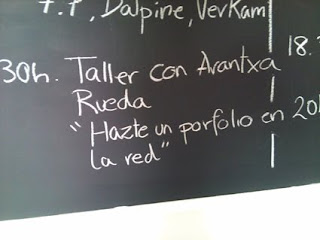 7.P, Dalpine, VerKam
18.
30h. Taller con Arantxa
Rueda
"Hazte un porfolio en
20h
la red"